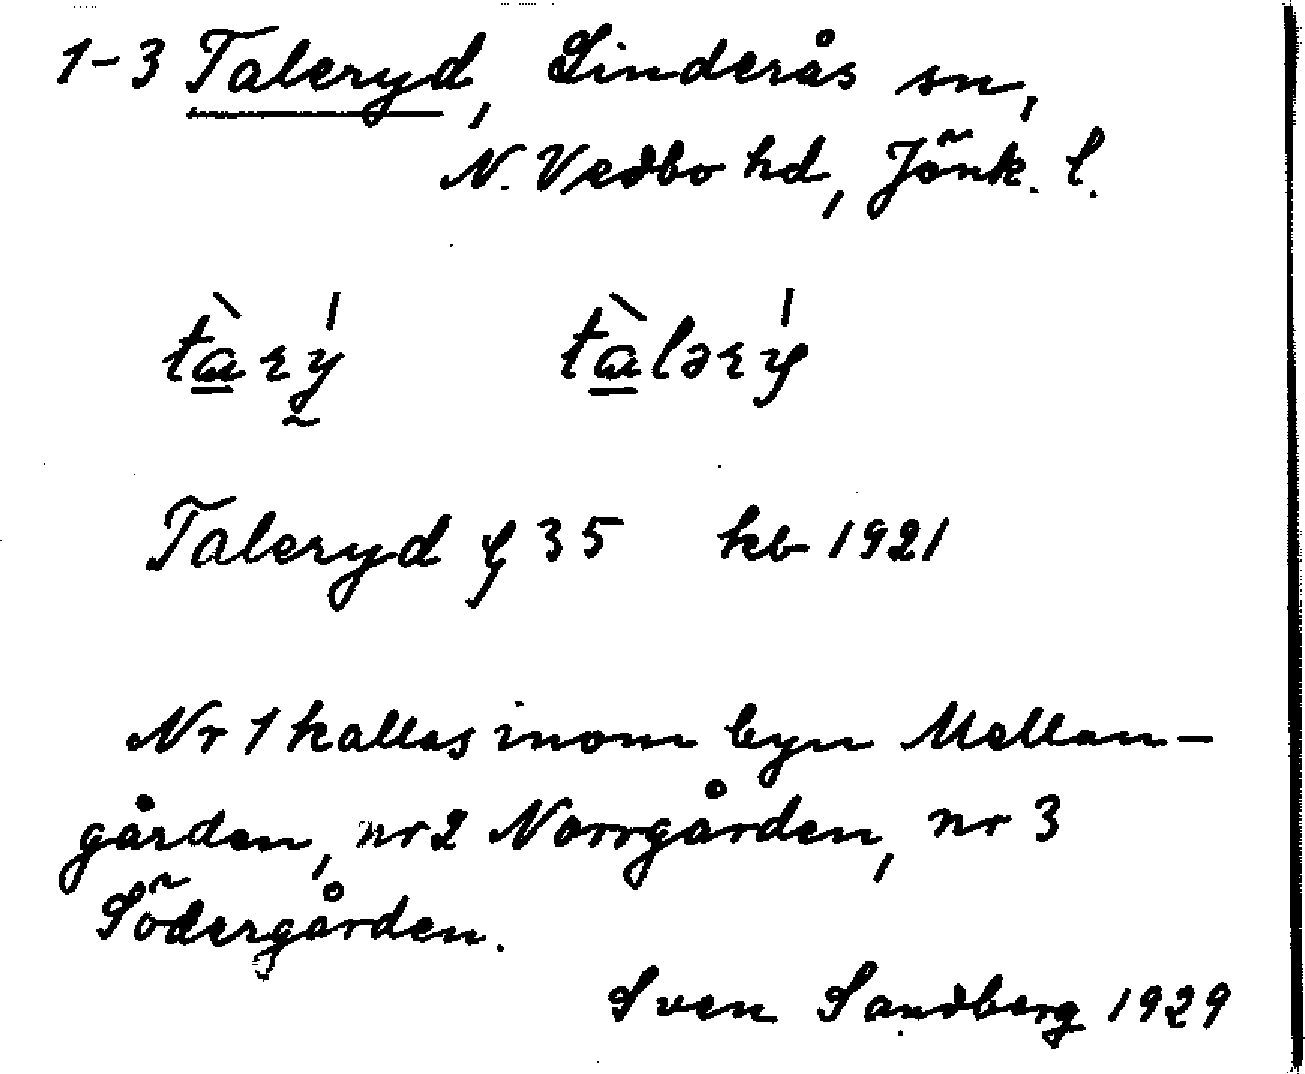 1-3 Taleryd, Linderås sn,
N. Vedbo hd, Jönk. l.
tàrý tàlərý
Taleryd § 35 kb 1921
Nr 1 kallas inom byn Mellan-
gården, nr 2 Norrgården, nr 3
Södergården.
Sven Sandberg 1929